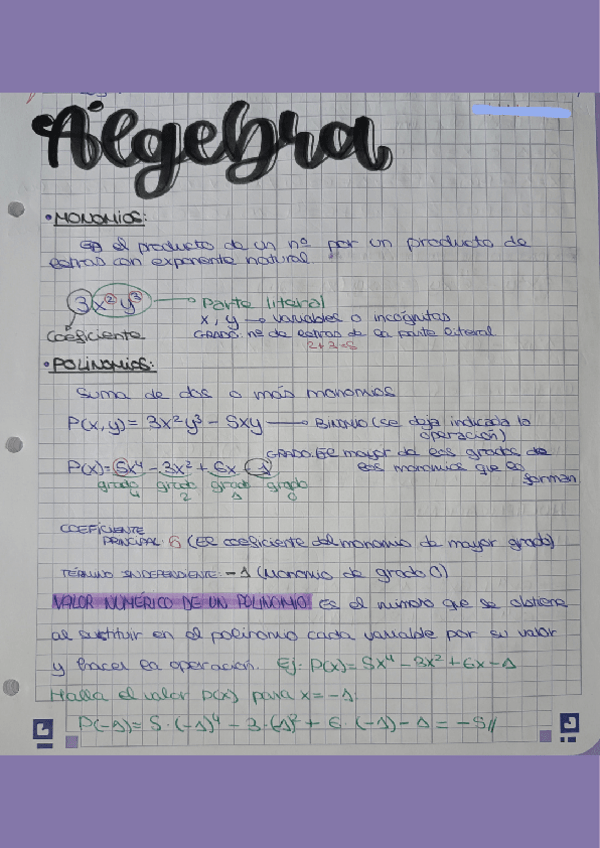 Algebra
• MONOMIOS:
Es el producto de un nº por un producto de
letras con exponente natural.
3x²y³ → Parte literal
x, y → variables o incógnitas
Coeficiente
GRADO: nº de letras de la parte literal
2+3=5
• POLINOMIOS:
Suma de dos o más monomios
P(x,y) = 3x²y³ - 5xy → BINOMIO (se deja indicada la
operación)
P(x) = 5x⁴ - 3x² + 6x - 1
GRADO: El mayor de los grados de
los monomios que lo
forman
grado 4 grado 2 grado 1 grado 0
COEFICIENTE
PRINCIPAL: 5 (El coeficiente del monomio de mayor grado)
TÉRMINO INDEPENDIENTE: -1 (Monomio de grado 0)
VALOR NUMÉRICO DE UN POLINOMIO: Es el número que se obtiene
al sustituir en el polinomio cada variable por su valor
y hacer la operación. Ej: P(x) = 5x⁴ - 3x² + 6x - 1
Halla el valor P(x) para x = -1:
P(-1) = 5·(-1)⁴ - 3·(-1)² + 6·(-1) - 1 = -5//